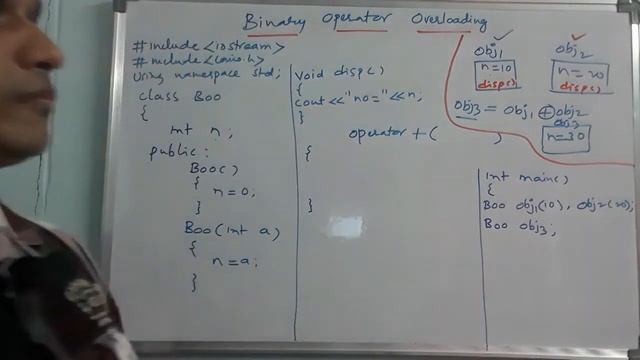 Binary Operator Overloading
#include<iostream>
#include<conio.h>
using namespace std;
class Boo
{
int n;
public:
Boo()
{
n=0;
}
Boo(int a)
{
n=a;
}
void disp()
{
cout<<"no="<<n;
}
operator +( )
{
}
obj1 obj2
n=10 n=20
disp() disp()
obj3 = obj1 + obj2
obj3
n=30
int main()
{
Boo obj1(10), obj2(20);
Boo obj3;